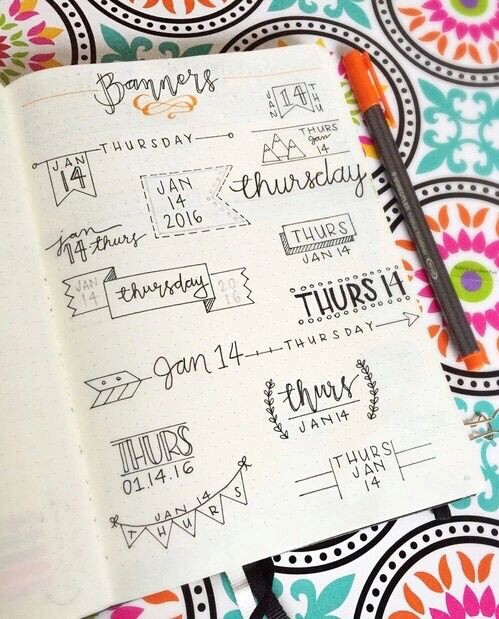 Banners
JAN
14
THU
THURSDAY
JAN
14
THURS
Jan
14
JAN
14
2016
thursday
jan
14 thurs
THURS
JAN 14
JAN
14
thursday
20
16
THURS 14
Jan 14
THURSDAY
thurs
JAN 14
THURS
01.14.16
THURS
JAN
14
JAN 14
THURS